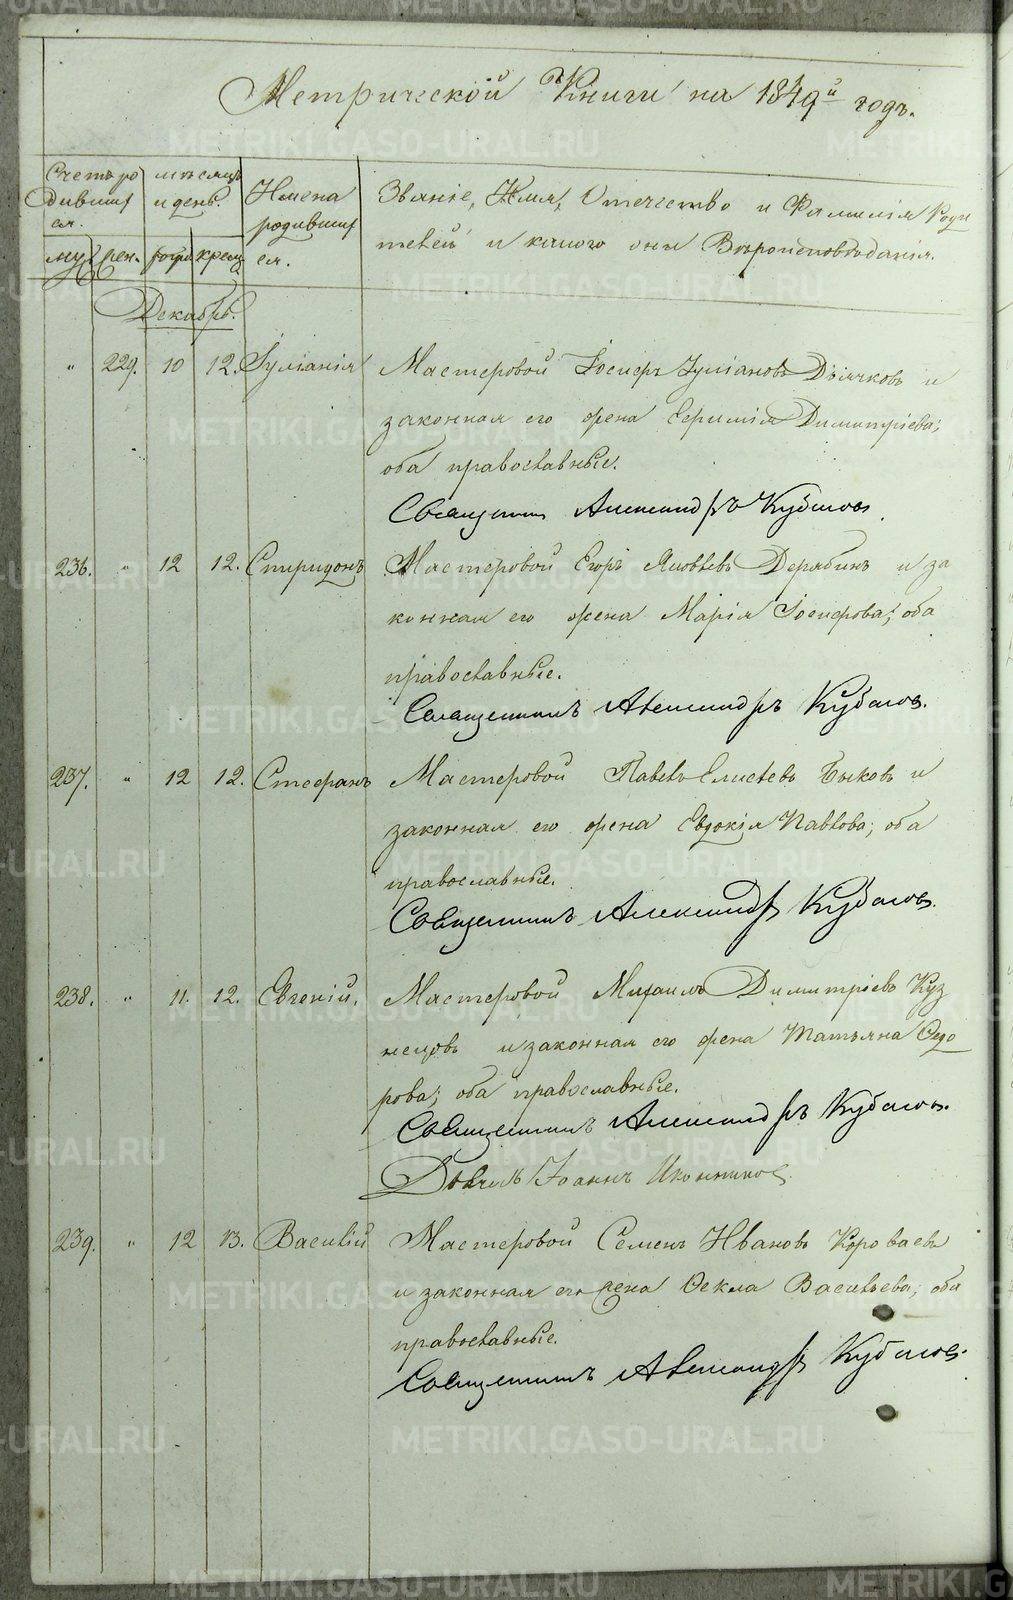 Метрической Книги на 1849й годъ.
Счетъ ро
дивших
ся.
муж.
жен.
мѣсяцъ
и день.
рожд.
крещ.
Имена
родивших
ся.
Званіе, Имя, Отечество и Фамилія Роди
телей и какого они Вѣроисповѣданія.
Декабрь.
„ 229. 10 12. Іуліанія Мастеровой Іосифъ Іуліановъ Дьячковъ и
законная его жена Димитріева;
оба православные.
Священник Александръ Кубасов
236. „ 12 12. Спиридонъ Мастеровой Егоръ Яковлевъ Дерябинъ и за
конная его жена Марія Іосифова; оба
православные.
Священникъ Александръ Кубасов.
237. „ 12 12. Стефанъ Мастеровой Павелъ Елисѣевъ Быковъ и
законная его жена Евдокія Павлова; оба
православные.
Священникъ Александр Кубасов.
238. „ 11. 12. Евгеній. Мастеровой Михаилъ Димитріевъ Куз
нецовъ и законная его жена Татьяна Ѳедо
рова; оба православные.
Священникъ Александръ Кубасов.
Іоаннъ Иконников
239. „ 12 13. Василій Мастеровой Семенъ Ивановъ Короваевъ
и законная его жена Ѳекла Васильева; оба
православные.
Священникъ Александр Кубасов.
METRIKI.GASO-URAL.RU